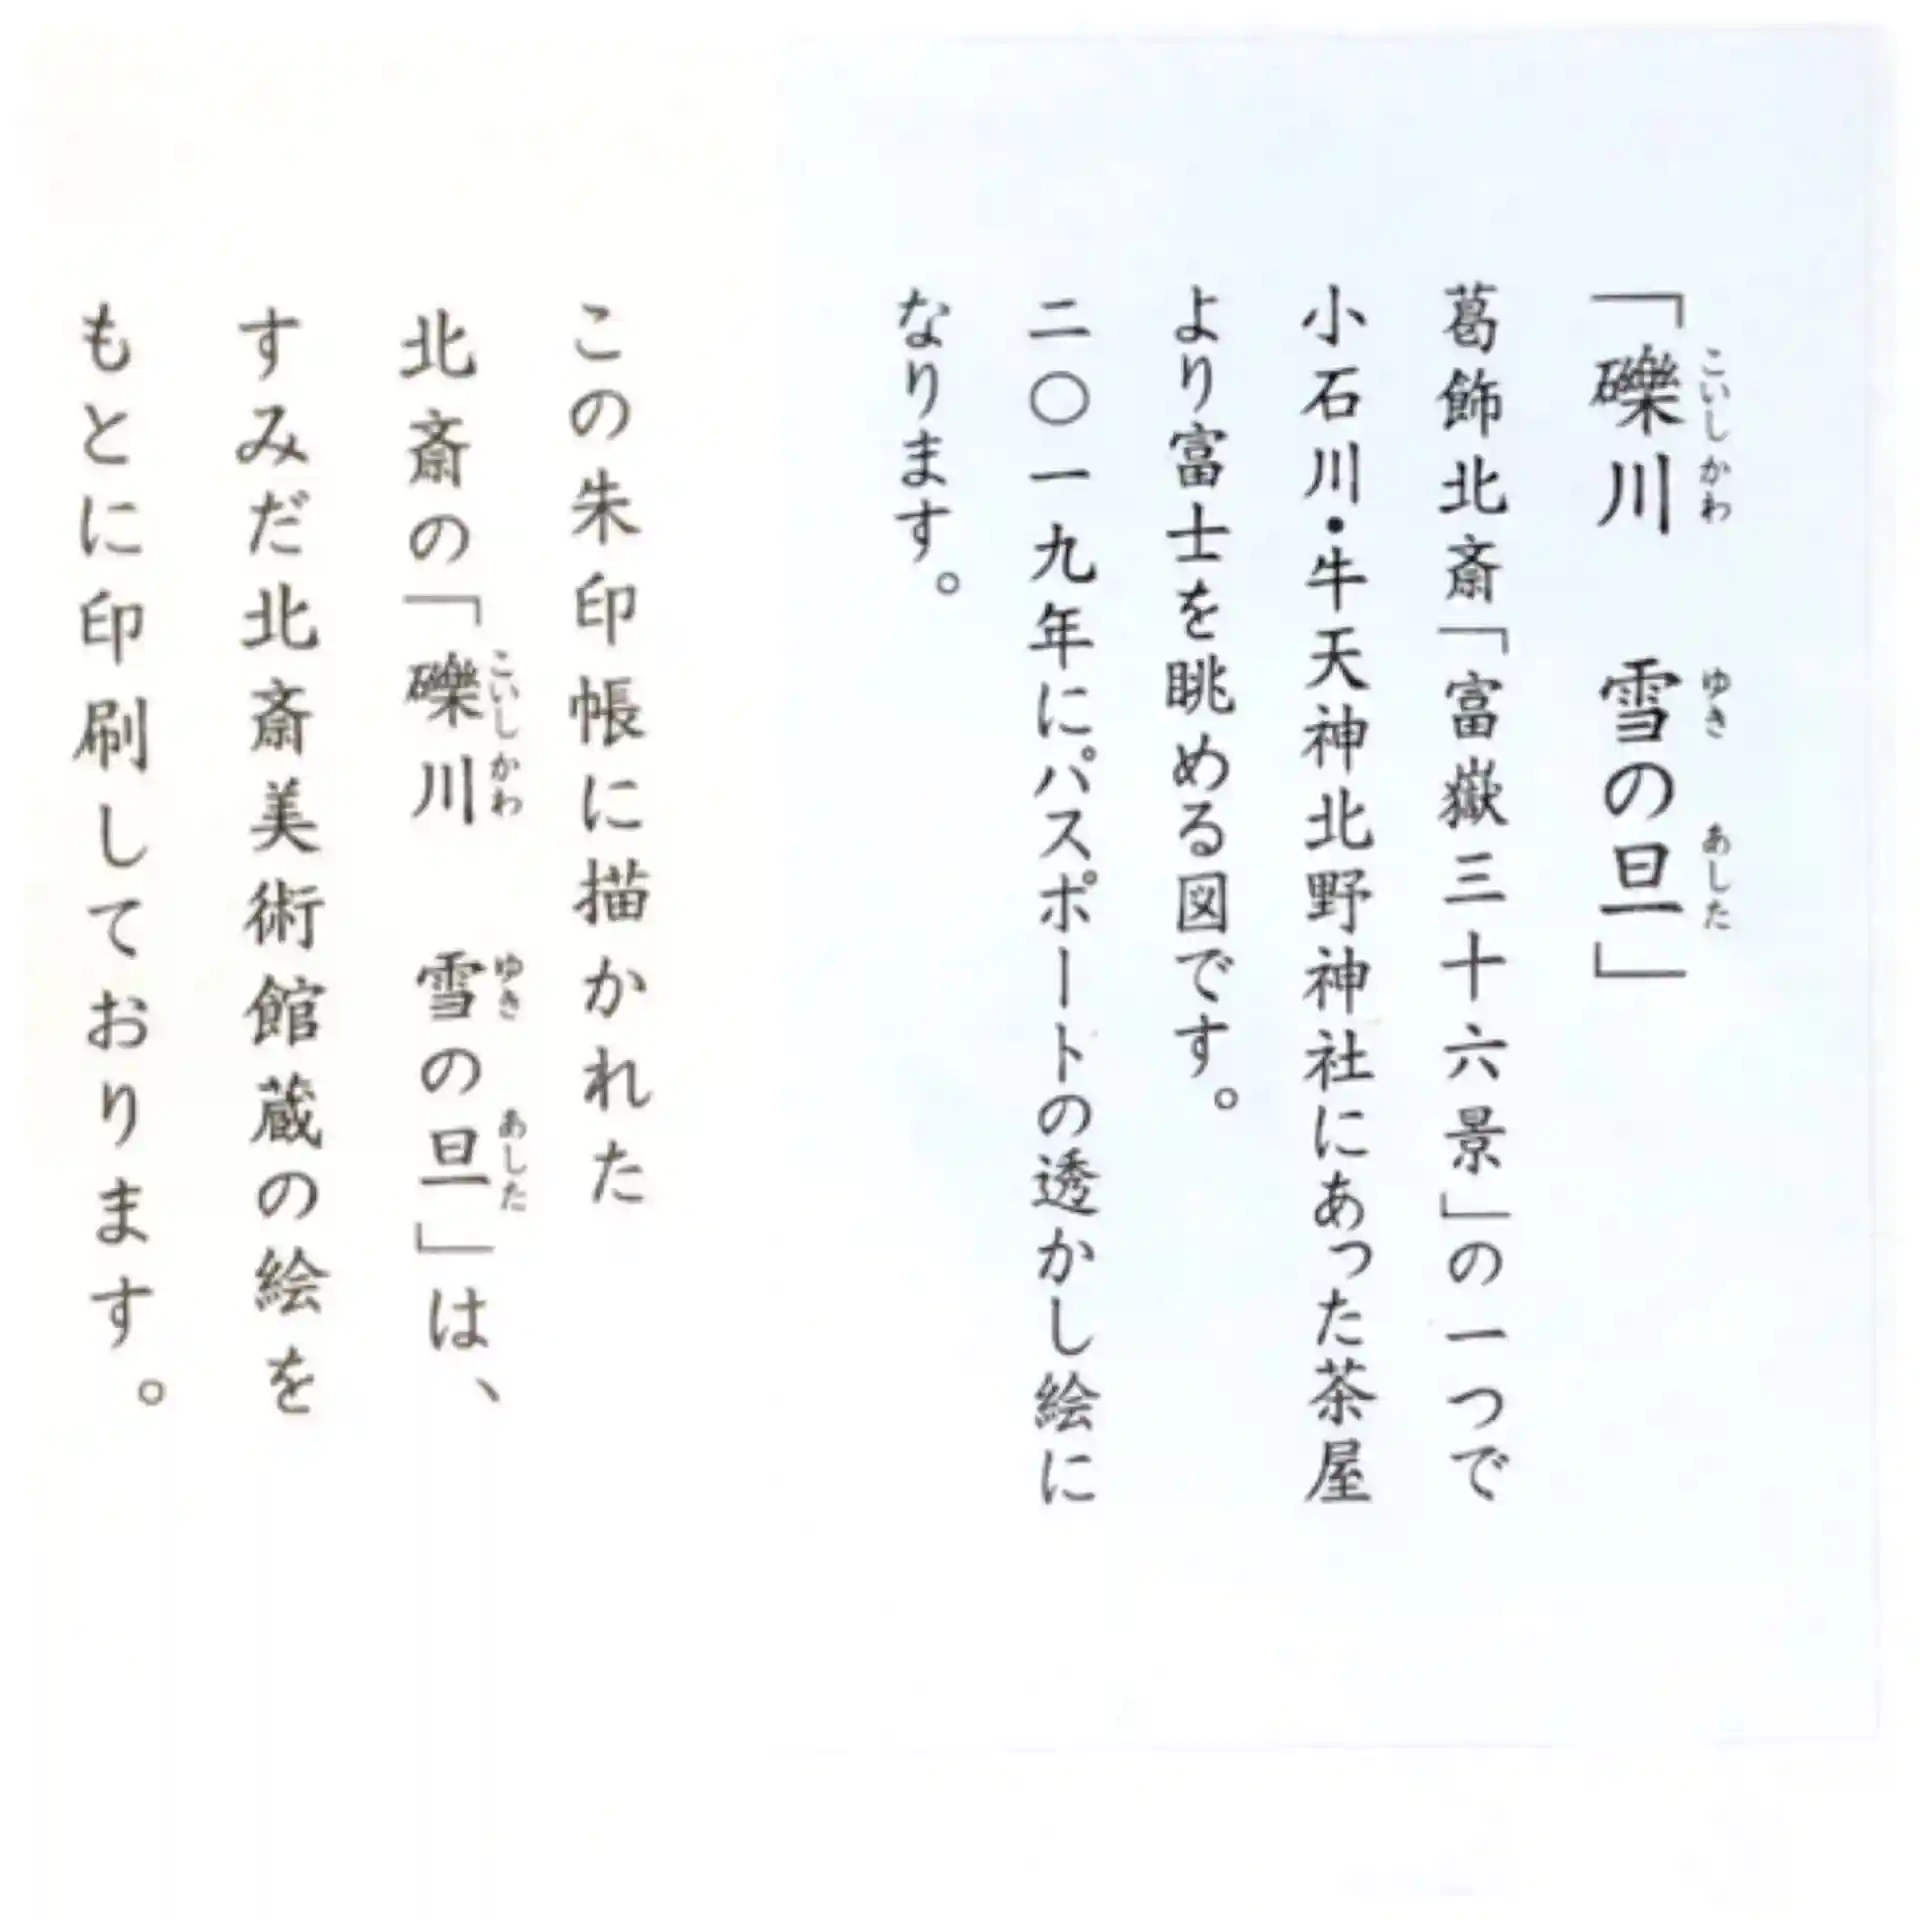 「礫川　雪の旦」
葛飾北斎「富嶽三十六景」の一つで
小石川・牛天神北野神社にあった茶屋
より富士を眺める図です。
二〇一九年にパスポートの透かし絵に
なります。
この朱印帳に描かれた
北斎の「礫川　雪の旦」は、
すみだ北斎美術館蔵の絵を
もとに印刷しております。